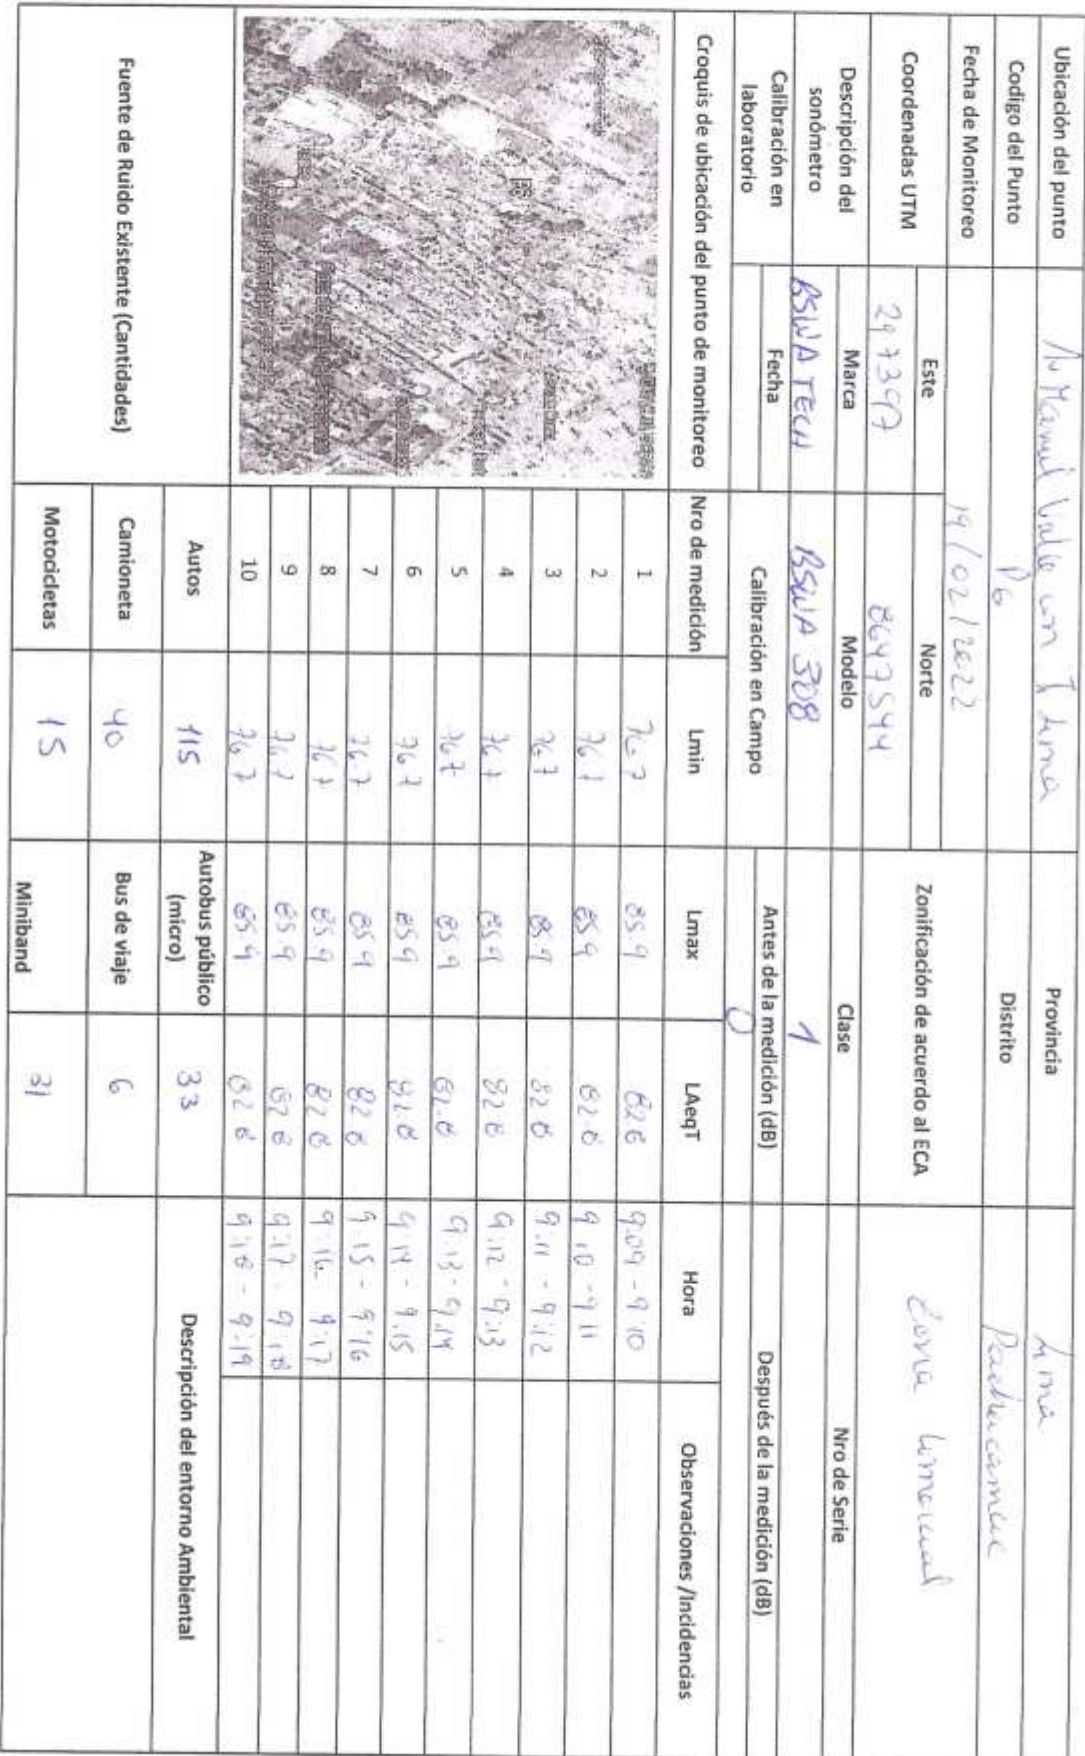 Ubicación del punto Av Manuel Valle con J Lima Provincia Lima
Codigo del Punto P6 Distrito Pachacamac
Fecha de Monitoreo 19/02/2022 Zonificación de acuerdo al ECA Zona
Coordenadas UTM Este Norte
297397 8647544
Descripción del sonómetro Marca Modelo Clase Nro de Serie
BSWA TECH BSWA 308 1
Calibración en laboratorio Fecha Calibración en Campo Antes de la medición (dB) Después de la medición (dB)
0
Croquis de ubicación del punto de monitoreo Nro de medición Lmin Lmax LAeqT Hora Observaciones /Incidencias
1 76.7 85.9 82.8 9:09 - 9:10
2 76.7 85.9 82.8 9:10 - 9:11
3 76.7 85.9 82.8 9:11 - 9:12
4 76.7 85.9 82.8 9:12 - 9:13
5 76.7 85.9 82.8 9:13 - 9:14
6 76.7 85.9 82.8 9:14 - 9:15
7 76.7 85.9 82.8 9:15 - 9:16
8 76.7 85.9 82.8 9:16 - 9:17
9 76.7 85.9 82.8 9:17 - 9:18
10 76.7 85.9 82.8 9:18 - 9:19
Fuente de Ruido Existente (Cantidades) Autos 115 Autobus público (micro) 33 Descripción del entorno Ambiental
Camioneta 40 Bus de viaje 6
Motocicletas 15 Miniband 31